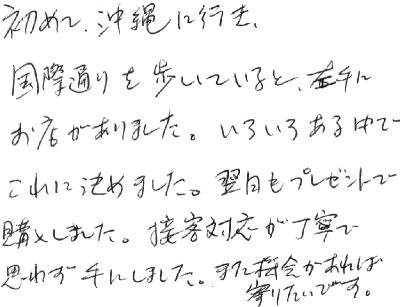 初めて、沖縄に行き、
国際通りを歩いていると、左手に
お店がありました。いろいろある中で
これに決めました。翌日もプレゼントで
購入しました。接客対応が丁寧で
思わず手にしました。また機会があれば
寄りたいです。